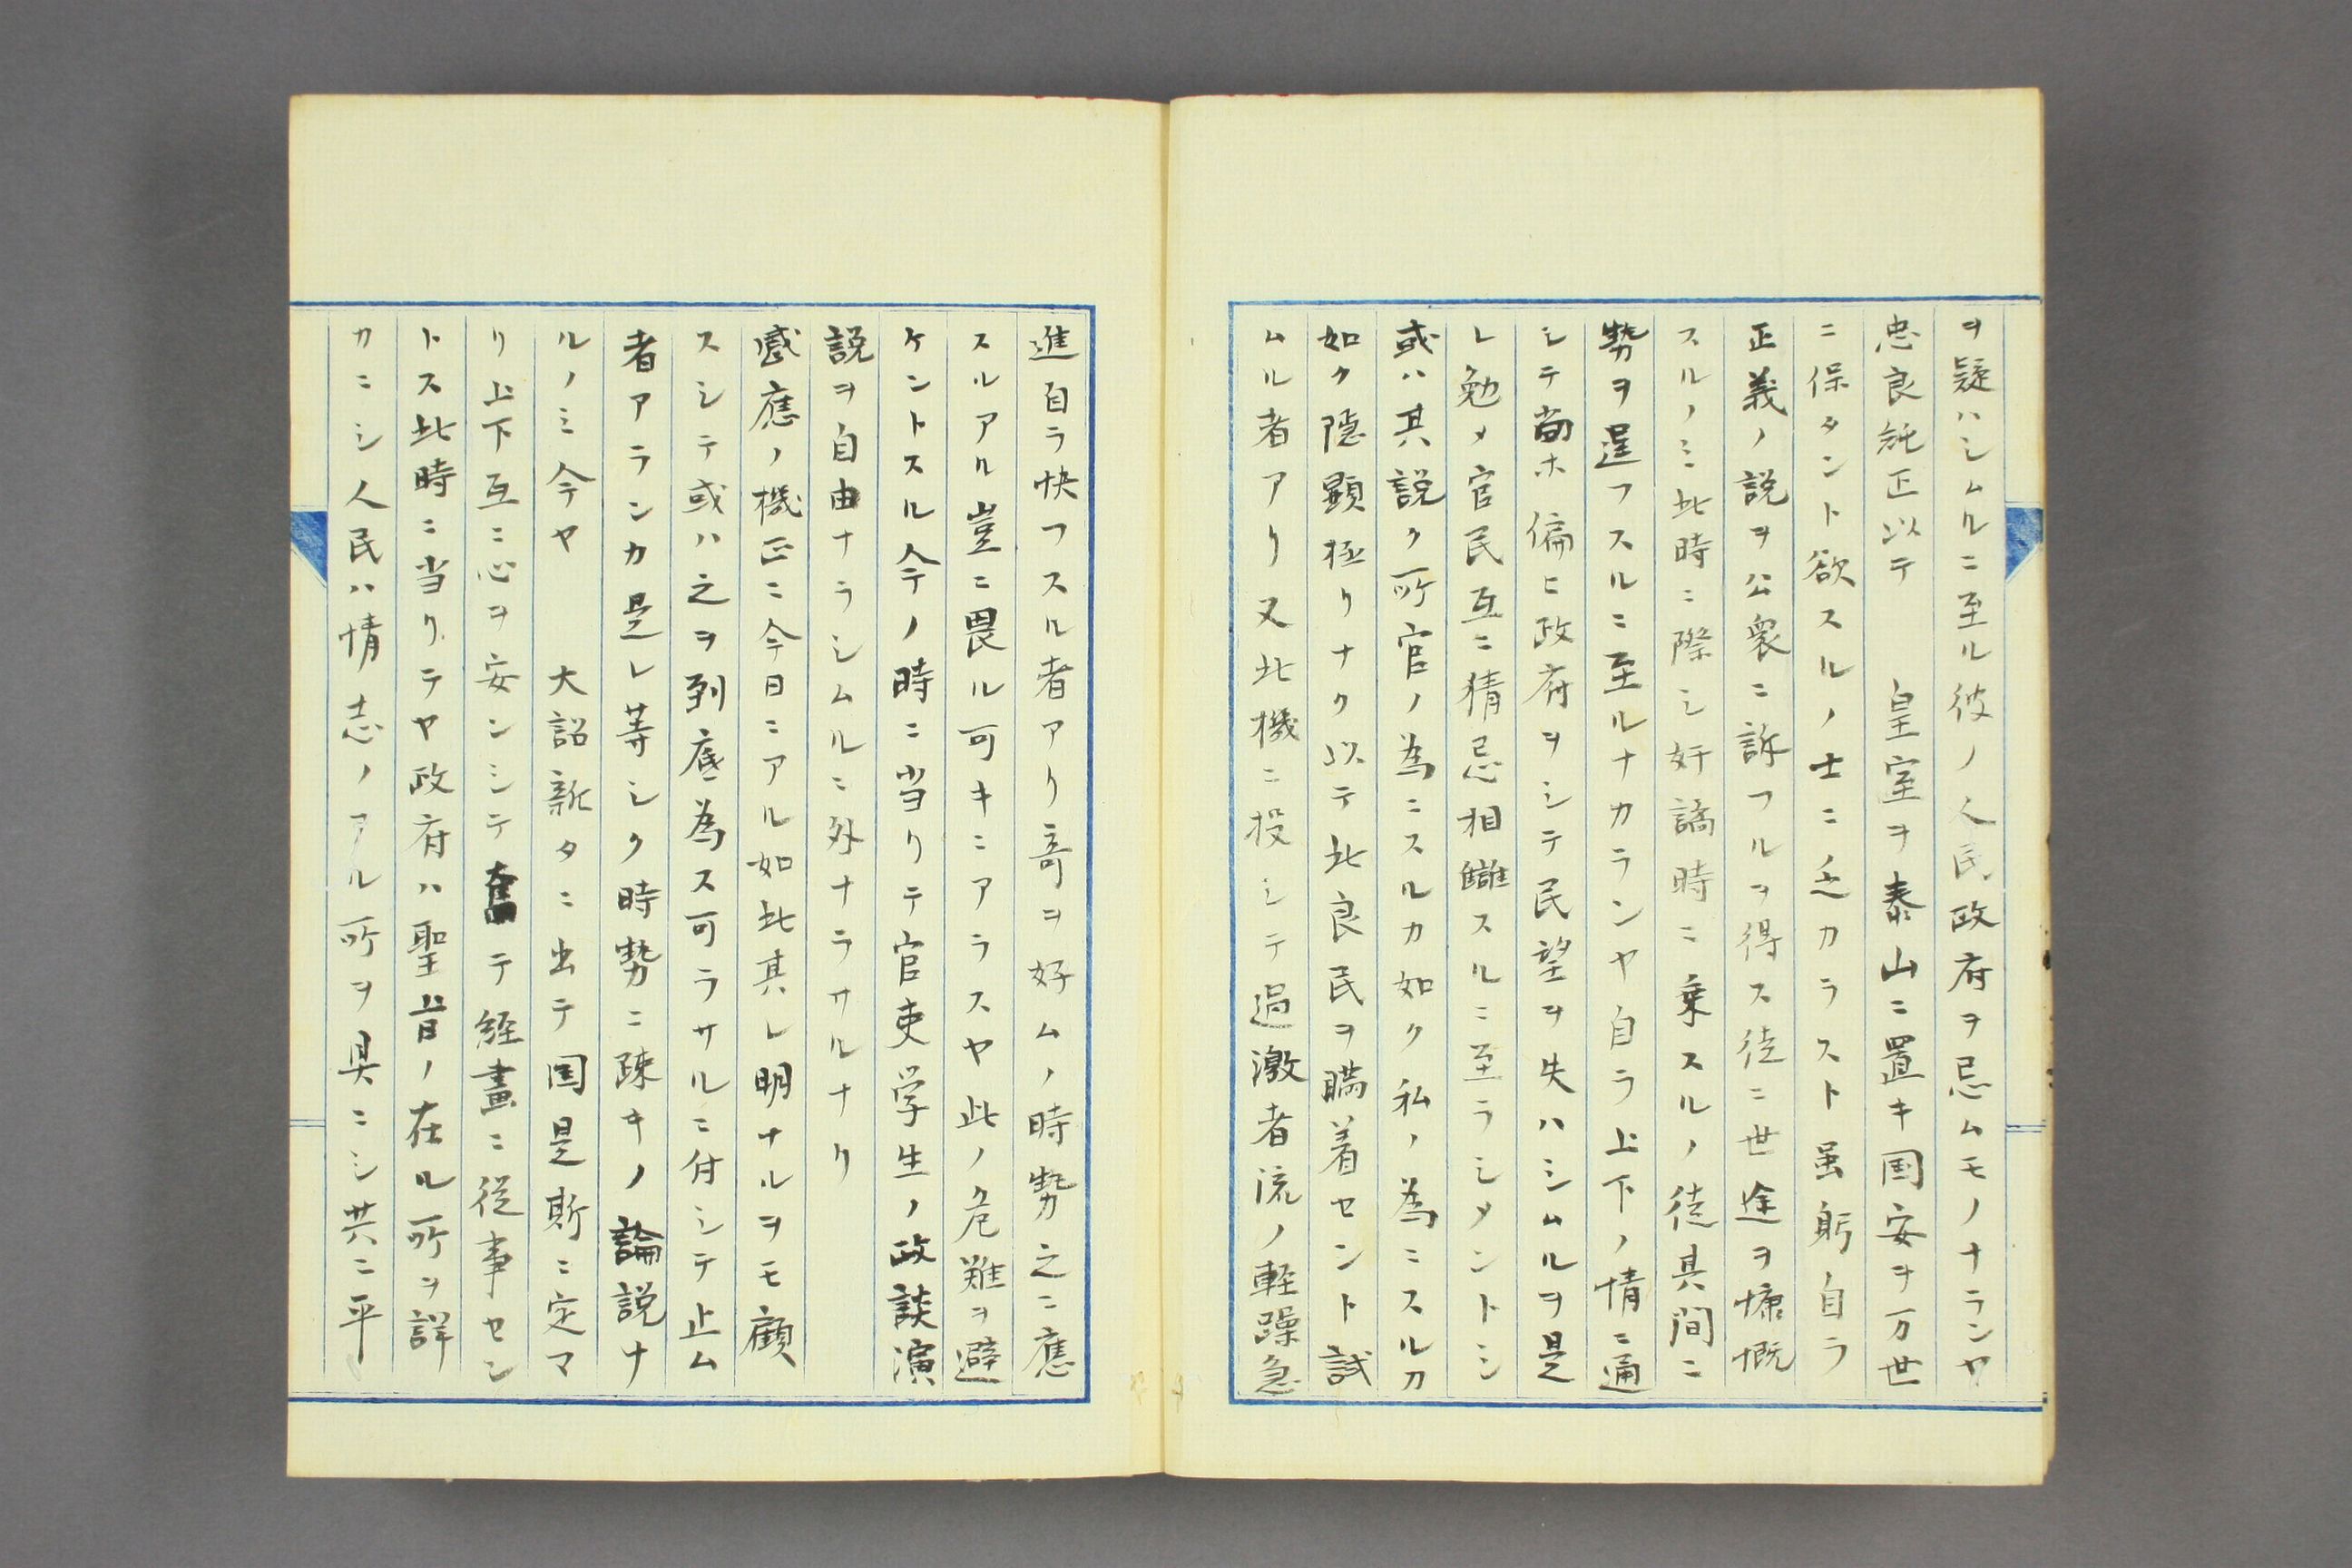 ヲ疑ハシムルニ至ル彼ノ人民政府ヲ忌ムモノナランヤ
忠良純正以テ　皇室ヲ泰山ニ置キ国安ヲ万世
ニ保タント欲スルノ士ニ乏カラスト虽躬自ラ
正義ノ説ヲ公衆ニ訴フルヲ得ス徒ニ世途ヲ慷慨
スルノミ此時ニ際シ奸譎時ニ乗スルノ徒其間ニ
勢ヲ逞フスルニ至ルナカランヤ自ラ上下ノ情ニ通
シテ尚ホ偏ヒ政府ヲシテ民望ヲ失ハシムルヲ是
レ勉メ官民互ニ猜忌相讎スルニ至ラシメントシ
或ハ其説ク所官ノ為ニスルカ如ク私ノ為ニスルカ
如ク隠顕極リナク以テ此良民ヲ瞞着セント試
ムル者アリ又此機ニ投シテ過激者流ノ軽躁急
進自ラ快フスル者アリ奇ヲ好ムノ時勢之ニ應
スルアル豈ニ畏ル可キニアラスヤ此ノ危難ヲ避
ケントスル今ノ時ニ当リテ官吏学生ノ政談演
説ヲ自由ナラシムルニ外ナラサルナリ
感應ノ機正ニ今日ニアル如此其レ明ナルヲモ顧
スシテ或ハ之ヲ到底為ス可ラサルニ付シテ止ム
者アランカ是レ等シク時勢ニ疎キノ論説ナ
ルノミ今ヤ　大詔新タニ出テ国是斯ニ定マ
リ上下互ニ心ヲ安ンシテ奮テ経畫ニ従事セン
トス此時ニ当リテヤ政府ハ聖旨ノ在ル所ヲ詳
カニシ人民ハ情志ノアル所ヲ具ニシ共ニ平